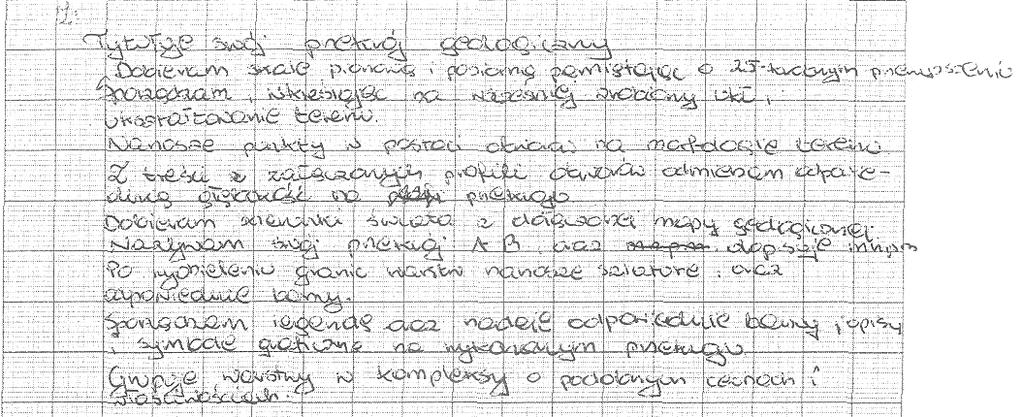 1.
Tytułuje swój przekrój geologiczny
Dobieram skale pionową i poziomą pamiętając o 25-krotnym przewyższeniu
Sporządzam, wkreślając na wcześniej zrobiony ukł,
ukształtowanie terenu.
Nanosze punkty w postaci otworów na morfologie terenu
Z treści z załączonych profili otworów odmierzam odpowie-
dnią głębokość na przekroju
Dobieram kierunki świata z dołączonej mapy geologicznej.
Nazywam swój przekrój A B oraz dopisuje
Po wydzieleniu granic warstw nanosze sziature oraz
odpowiednie barwy.
Sporządzam legendę oraz nadaję odpowiednie barwy, opisy
i symbole graficzne na wykonanym przekroju
Grupuje warstwy w kompleksy o podobnych cechach i
właściwościach.